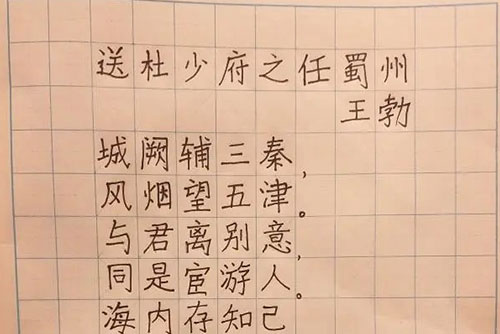 送杜少府之任蜀州
王勃
城厥辅三秦，
风烟望五津。
与君离别意，
同是宦游人。
海内存知己